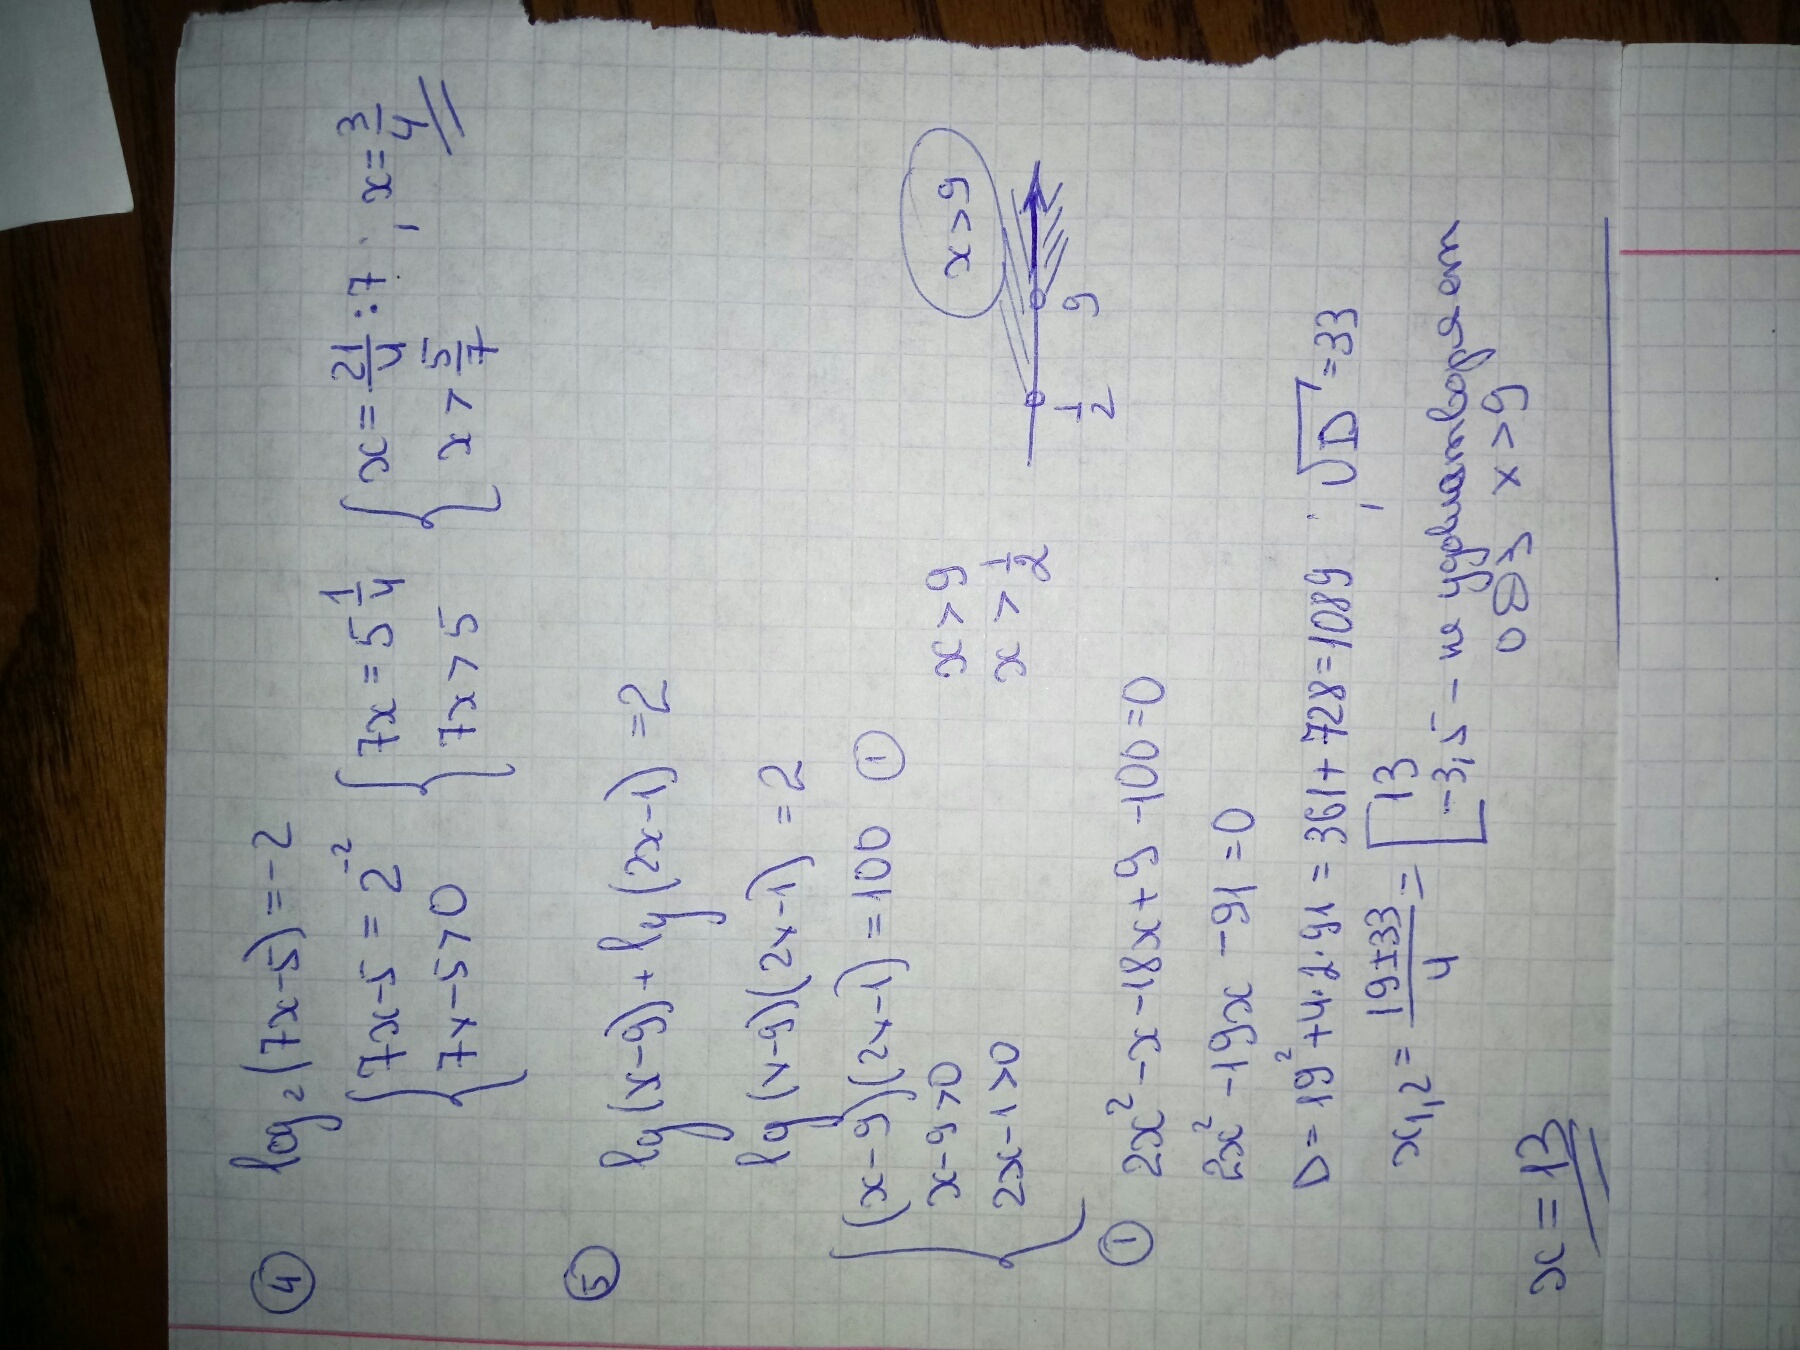 ④ log₂(7x-5)=-2
{ 7x-5=2⁻² { 7x=5 1/4 { x=21/4:7; x=3/4
7x-5>0 7x>5 x>5/7
⑤ lg(x-9)+lg(2x-1)=2
lg(x-9)(2x-1)=2
{ (x-9)(2x-1)=100 ①
x-9>0 x>9 x>9
2x-1>0 x>1/2 1/2 9
① 2x²-x-18x+9-100=0
2x²-19x-91=0
D=19²+4·2·91=361+728=1089; √D=33
x₁,₂=(19±33)/4=[ 13
-3,5 - не удовлетворяет
ОДЗ x>9
x=13